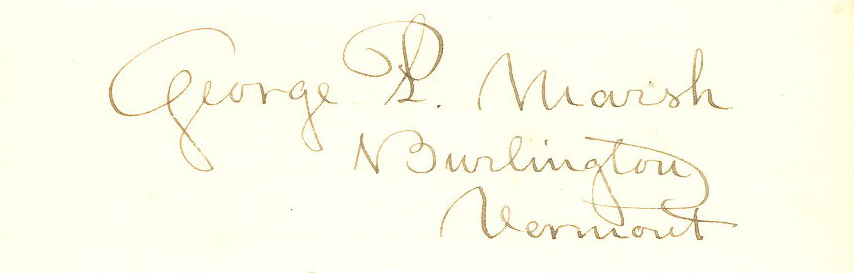 George P. Marsh
Burlington
Vermont